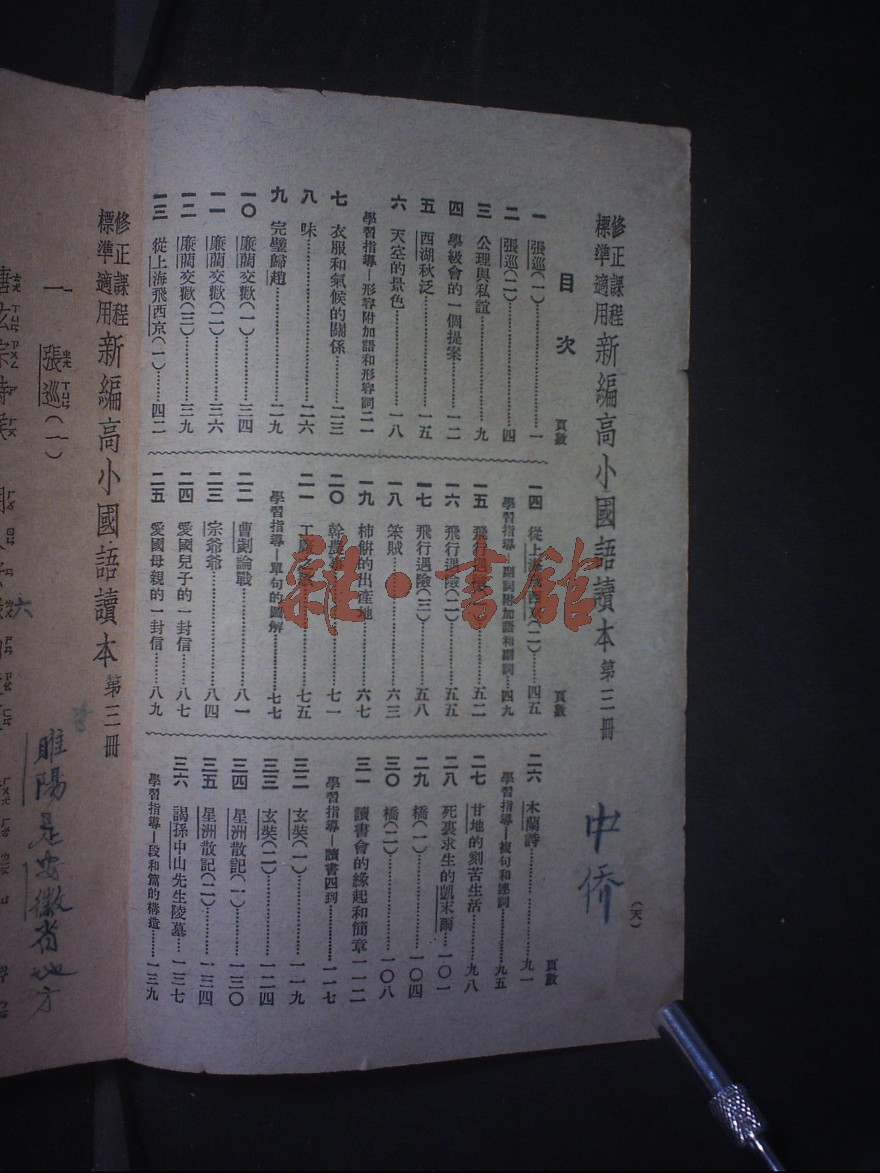 修正課程標準適用 新編高小國語讀本 第三冊
目次
頁數
一 張巡(一)………一
二 張巡(二)………四
三 公理與私誼………九
四 學級會的一個提案………一二
五 西湖秋泛………一五
六 天空的景色………一八
學習指導—形容附加語和形容詞二一
七 衣服和氣候的關係………二三
八 味………二六
九 完璧歸趙………二九
一〇 廉藺交歡(一)………三四
一一 廉藺交歡(二)………三六
一二 廉藺交歡(三)………三九
一三 從上海飛西京(一)………四二
頁數
一四 從上海飛西京(二)………四五
學習指導—副詞附加語和副詞………四九
一五 飛行遇險(一)………五二
一六 飛行遇險(二)………五五
一七 飛行遇險(三)………五八
一八 笨賊………六三
一九 柿餅的出產地………六七
二〇 幹………七一
二一 工………七五
學習指導—單句的圖解………七七
二二 曹劌論戰………八一
二三 宗爺爺………八四
二四 愛國兒子的一封信………八七
二五 愛國母親的一封信………八九
頁數
二六 木蘭詩………九一
學習指導—複句和連詞………九五
二七 甘地的刻苦生活………九八
二八 死裏求生的凱末爾………一〇一
二九 橋(一)………一〇四
三〇 橋(二)………一〇八
三一 讀書會的緣起和簡章………一一二
學習指導—讀書四到………一一七
三二 玄奘(一)………一一九
三三 玄奘(二)………一二四
三四 星洲散記(一)………一三〇
三五 星洲散記(二)………一三四
三六 謁孫中山先生陵墓………一三七
學習指導—段和篇的構造………一三九
(天)
中侨
雜·書館
修正課程標準適用 新編高小國語讀本 第三冊
一 張巡(一)
睢陽是安徽省地方
六